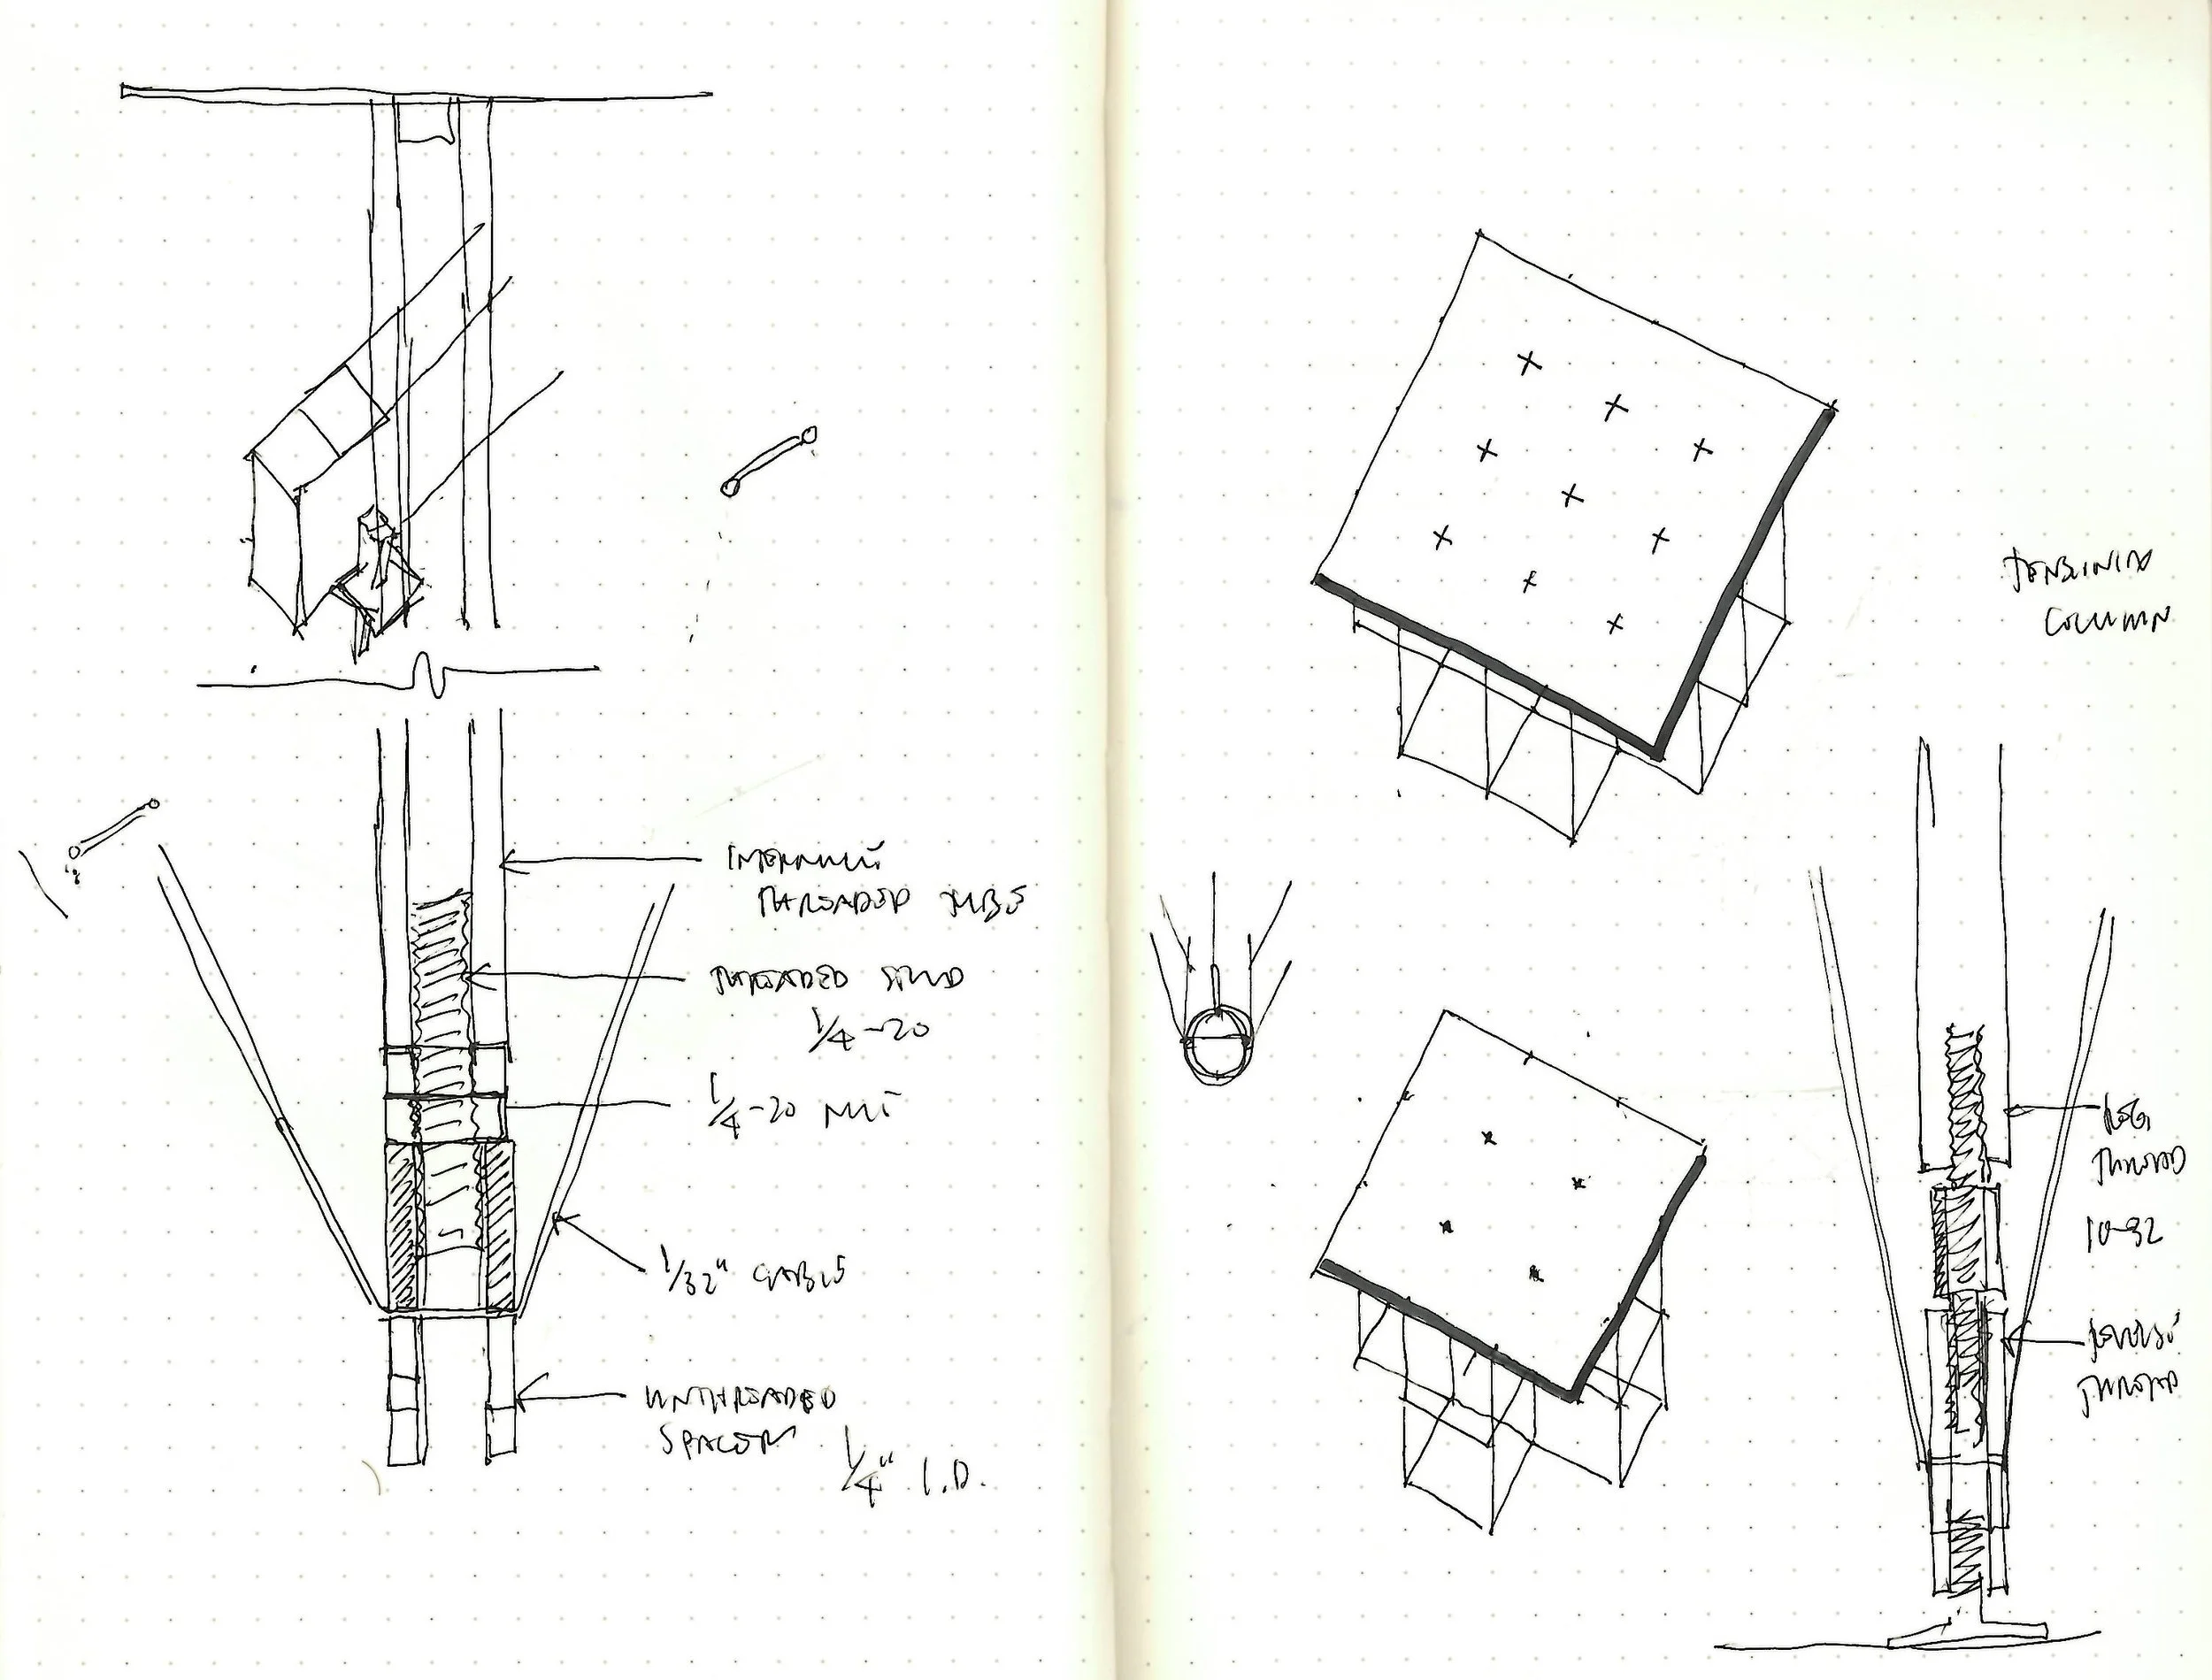 INTERNAL
THREADED TUBE
THREADED STUD
1/4-20
1/4-20 NUT
1/32" CABLE
UNTHREADED
SPACER
1/4" I.D.
COLUMN
REG.
THREAD
10-32
REVERSE
THREAD